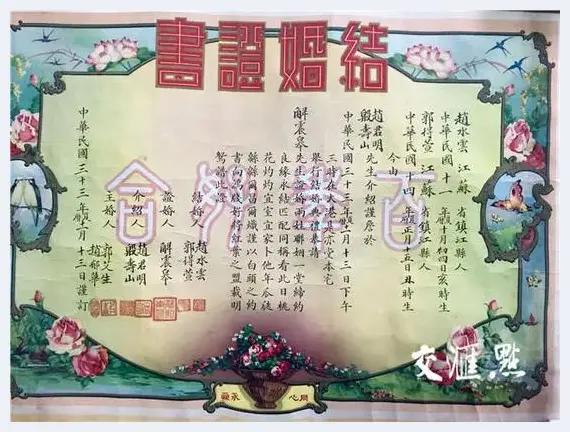 結婚證書
趙水雲 江蘇省鎮江縣人
中華民國十一年舊曆十月初四日亥時生
郭得萱 江蘇省鎮江縣人
中華民國十四年舊曆正月十五日丑時生
今由
趙君明
殷壽山 先生介紹謹詹於
中華民國三十三年舊曆二月十三日下午
三時在大港集亦堂本宅
舉行結婚典禮恭請
解震皋先生證婚兩姓聯姻一堂締約
良緣永結匹配同稱看此日桃
花灼灼宜室宜家卜他年瓜瓞
緜緜爾昌爾熾謹以白頭之約
書向鴻牋好將紅葉之盟載明
鴛譜此證
結婚人 趙水雲
郭得萱
證婚人 解震皋
介紹人 趙君明
殷壽山
主婚人
趙郁華
中華民國三十三年舊曆二月十三日謹訂
百 合
同心
永
交匯點